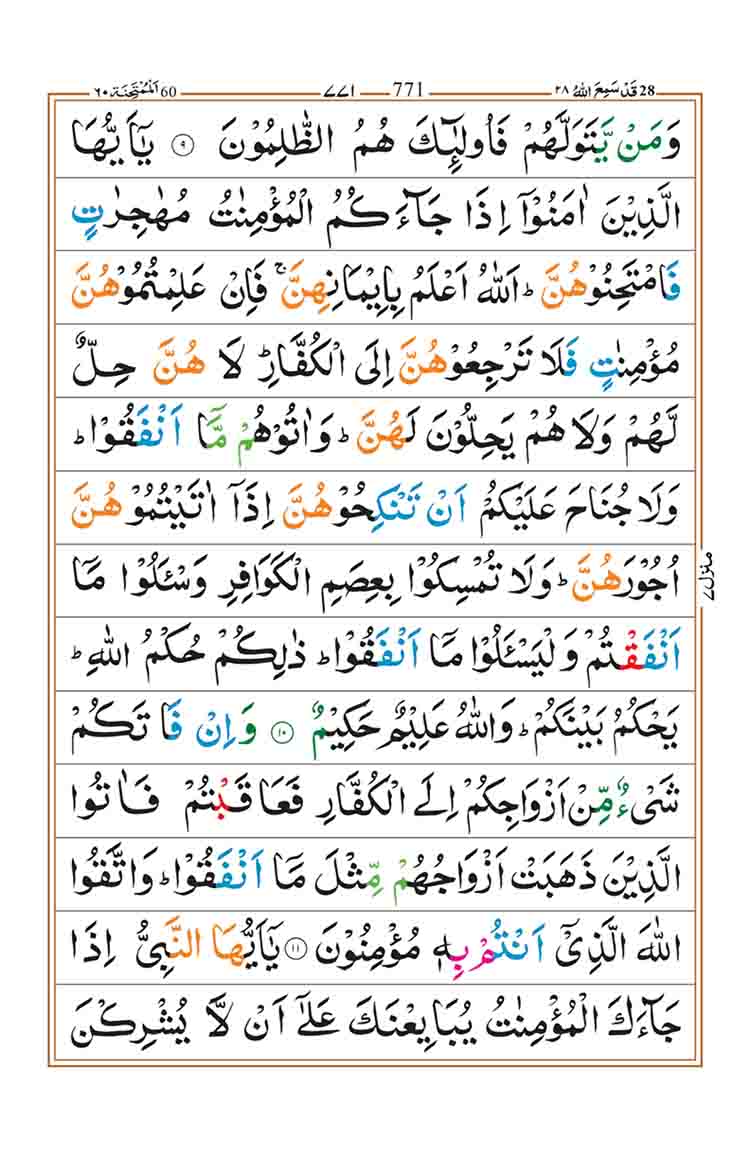 28 قَدْ سَمِعَ اللّٰهُ ٢٨ 771 ٧٧١ 60 اَلْمُمْتَحِنَة ٦٠
وَمَنْ يَّتَوَلَّهُمْ فَاُولٰٓئِكَ هُمُ الظّٰلِمُوْنَ ۝٩ يٰۤاَيُّهَا
الَّذِيْنَ اٰمَنُوْۤا اِذَا جَآءَكُمُ الْمُؤْمِنٰتُ مُهٰجِرٰتٍ
فَامْتَحِنُوْهُنَّ ؕ اَللّٰهُ اَعْلَمُ بِاِيْمَانِهِنَّ ۚ فَاِنْ عَلِمْتُمُوْهُنَّ
مُؤْمِنٰتٍ فَلَا تَرْجِعُوْهُنَّ اِلَى الْكُفَّارِ ؕ لَا هُنَّ حِلٌّ
لَّهُمْ وَلَا هُمْ يَحِلُّوْنَ لَهُنَّ ؕ وَاٰتُوْهُمْ مَّاۤ اَنْفَقُوْا ؕ
وَلَا جُنَاحَ عَلَيْكُمْ اَنْ تَنْكِحُوْهُنَّ اِذَاۤ اٰتَيْتُمُوْهُنَّ
اُجُوْرَهُنَّ ؕ وَلَا تُمْسِكُوْا بِعِصَمِ الْكَوَافِرِ وَسْـَٔلُوْا مَاۤ
اَنْفَقْتُمْ وَلْيَسْـَٔلُوْا مَاۤ اَنْفَقُوْا ؕ ذٰلِكُمْ حُكْمُ اللّٰهِ ؕ
يَحْكُمُ بَيْنَكُمْ ؕ وَاللّٰهُ عَلِيْمٌ حَكِيْمٌ ۝١٠ وَاِنْ فَاتَكُمْ
شَيْءٌ مِّنْ اَزْوَاجِكُمْ اِلَى الْكُفَّارِ فَعَاقَبْتُمْ فَاٰتُوا
الَّذِيْنَ ذَهَبَتْ اَزْوَاجُهُمْ مِّثْلَ مَاۤ اَنْفَقُوْا ؕ وَاتَّقُوا
اللّٰهَ الَّذِيْۤ اَنْتُمْ بِهٖ مُؤْمِنُوْنَ ۝١١ يٰۤاَيُّهَا النَّبِيُّ اِذَا
جَآءَكَ الْمُؤْمِنٰتُ يُبَايِعْنَكَ عَلٰۤى اَنْ لَّا يُشْرِكْنَ
منزل ٧